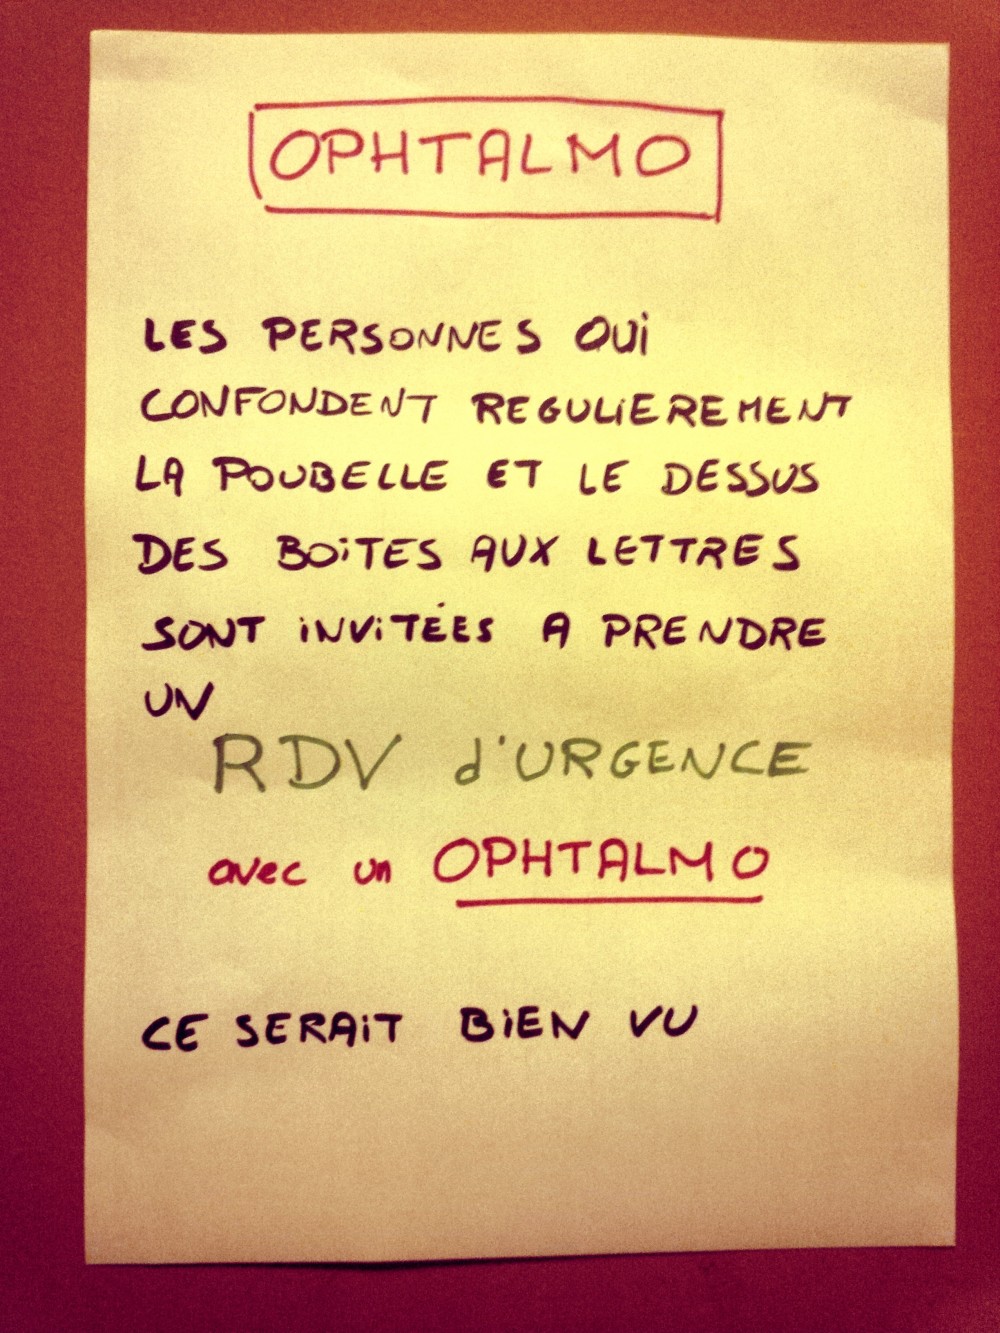 OPHTALMO
LES PERSONNES QUi
CONFONDENT REGULiEREMENT
LA POUBELLE ET LE DESSUS
DES BOiTES AUX LETTRES
SONT iNViTÉES A PRENDRE
UN
RDV d'URGENCE
avec un OPHTALMO
CE SERAiT BiEN VU